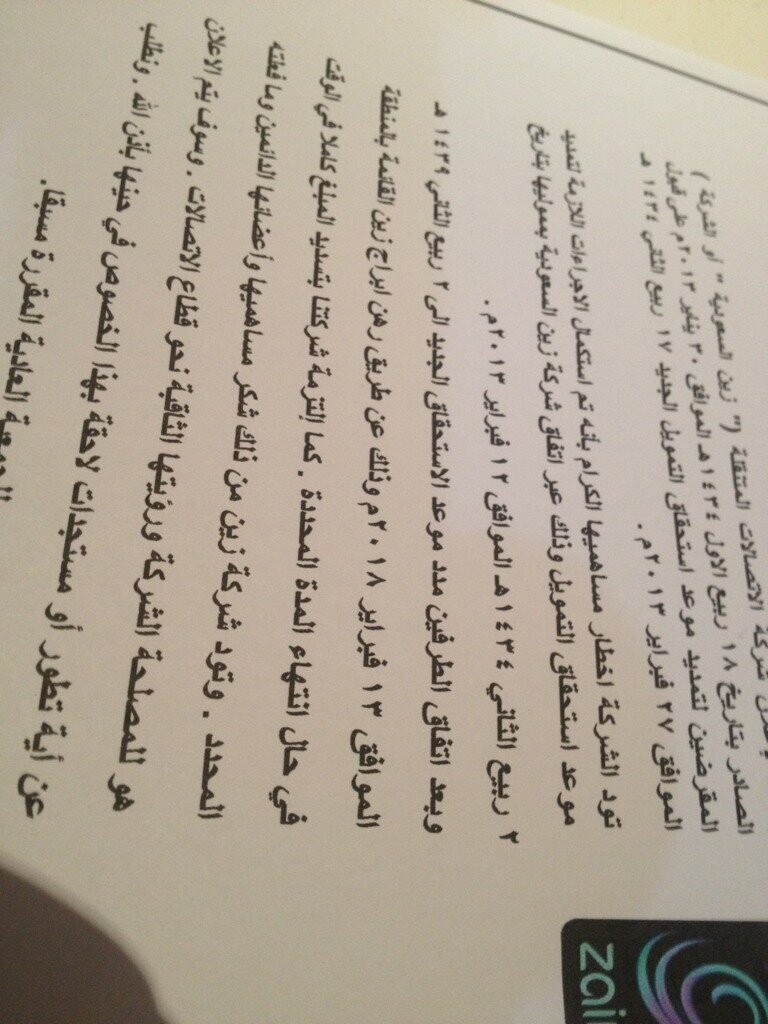 شركة الاتصالات المتنقلة (" زين السعودية " أو الشركة )
الصادر بتاريخ ١٨ ربيع الاول ١٤٣٤هـ الموافق ٣٠ يناير ٢٠١٣م على قبول
المقرضين لتمديد موعد استحقاق التمويل الجديد ١٧ ربيع الثاني ١٤٣٤ هـ
الموافق ٢٧ فبراير ٢٠١٣م .
تود الشركة اخطار مساهميها الكرام بأنه تم استكمال الاجراءات اللازمة لتمديد
موعد استحقاق التمويل وذلك عبر اتفاق شركة زين السعودية بمموليها بتاريخ
٢ ربيع الثاني ١٤٣٤ هـ الموافق ١٢ فبراير ٢٠١٣م .
وبعد اتفاق الطرفين مدد موعد الاستحقاق الجديد الى ٢ ربيع الثاني ١٤٣٩ هـ
الموافق ١٣ فبراير ٢٠١٨م وذلك عن طريق رهن ابراج زين القائمة بالمنطقة
في حال انتهاء المدة المحددة . كما إلتزمة شركتنا بتسديد المبلغ كاملا في الوقت
المحدد . وتود شركة زين من ذلك شكر مساهميها وأعضائها الدائمين وما فعلته
هو للمصلحة الشركة ورؤيتها الثاقبة نحو قطاع الاتصالات . وسوف يتم الاعلان
عن أية تطور أو مستجدات لاحقة بهذا الخصوص في حينها بأذن الله . ونطلب
الجمعية العادية المقررة مسبقا.
zain